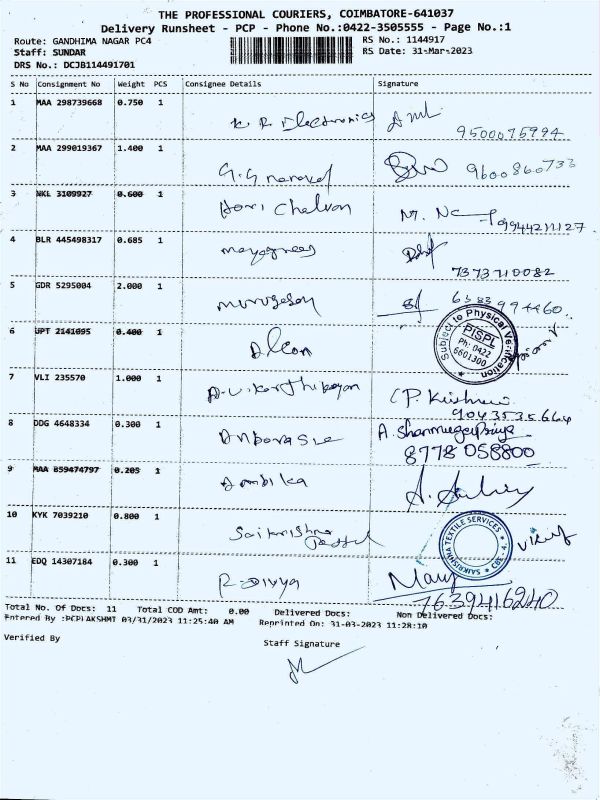 THE PROFESSIONAL COURIERS, COIMBATORE-641037
Delivery Runsheet - PCP - Phone No.:0422-3505555 - Page No.:1
Route: GANDHIMA NAGAR PC4 RS No.: 1144917
Staff: SUNDAR RS Date: 31-Mar-2023
DRS No.: DCJB114491701
S No Consignment No Weight PCS Consignee Details Signature
1 MAA 298739668 0.750 1 K R Electronics
9500075994
2 MAA 299019367 1.400 1 G.G
9600860733
3 NKL 3109927 0.600 1 Hari Chelvan
9944211127
4 BLR 445498317 0.685 1
7373710082
5 GDR 5295004 2.000 1 murugesan
6383994460
6 UPT 2141695 0.400 1
Subject to Physical Verification
PISPL
Ph: 0422
6601300
7 VLI 235570 1.000 1 A.V. Karthikeyan P. Krishna
9043535664
8 DDG 4648334 0.300 1 A. Shanmugapriya
8778 058800
9 MAA 859474797 0.205 1 Ambika
10 KYK 7039210 0.800 1 Saikrishna
SAIKRISHNA TEXTILE SERVICES CBE - 4
11 EDQ 14307184 0.300 1 R. Divya Mary
7639416240
Total No. Of Docs: 11 Total COD Amt: 0.00 Delivered Docs: Non Delivered Docs:
Entered By :PCPLAKSHMI 03/31/2023 11:25:40 AM Reprinted On: 31-03-2023 11:28:10
Verified By Staff Signature